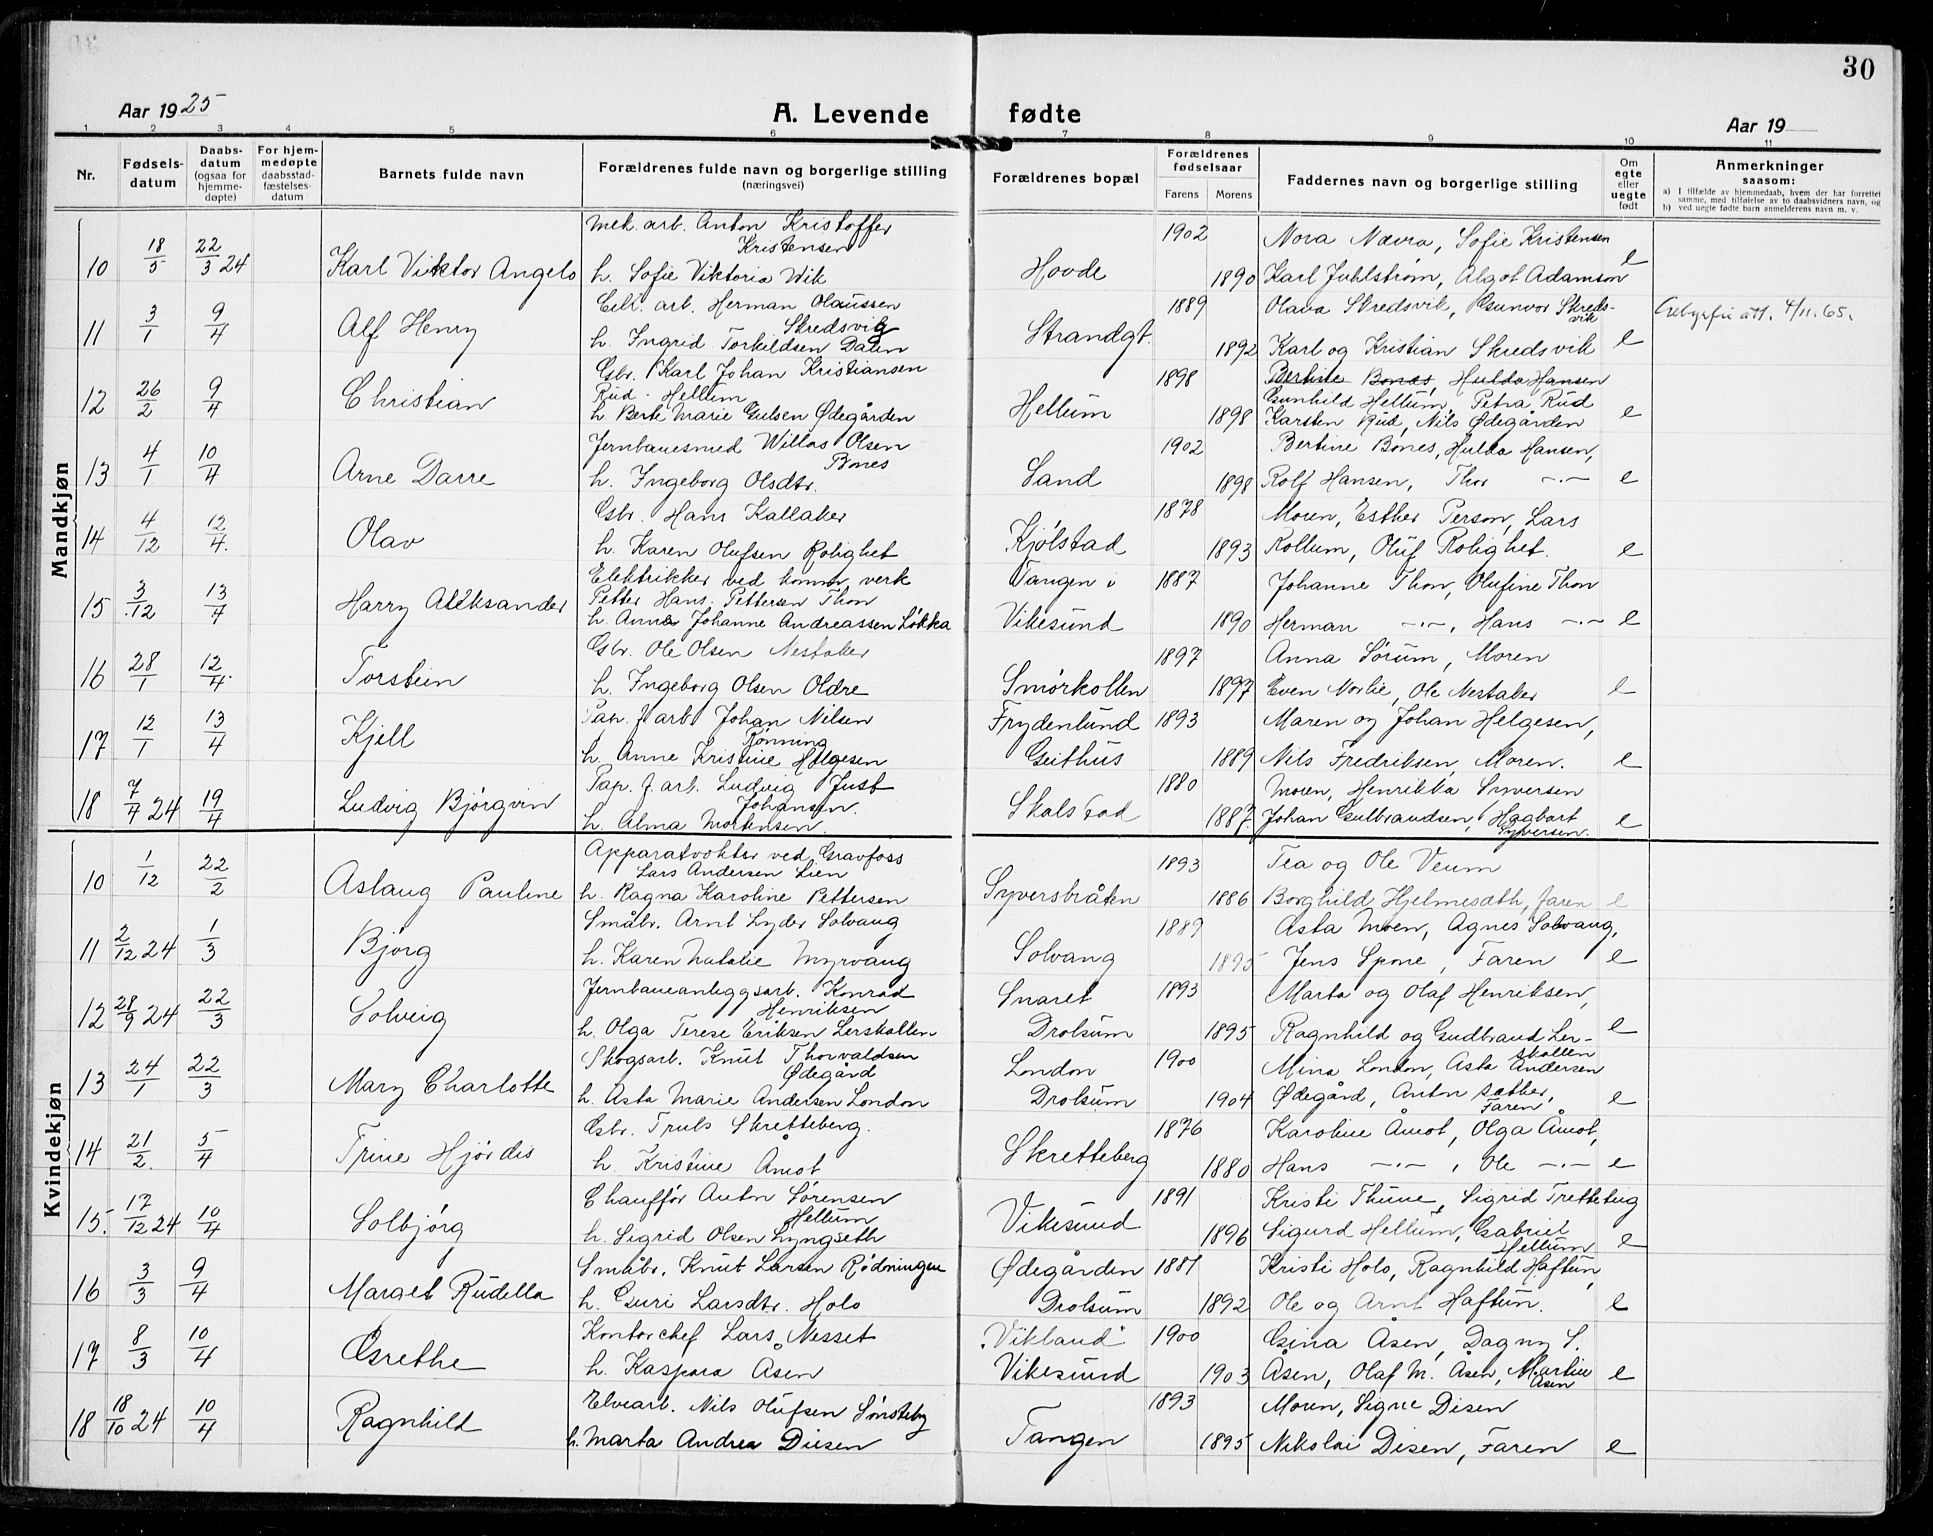 30
Aar 1925
A. Levende fødte
Aar 19
1 2 3 4 5 6 7 8 9 10 11
Nr.
Fødsels-
datum
Daabs-
datum
(ogsaa for
hjemme-
døpte)
For hjem-
medøpte
daabsstad-
fæstelses-
datum
Barnets fulde navn
Forældrenes fulde navn og borgerlige stilling
(næringsvei)
Forældrenes bopæl
Forældrenes
fødselsaar
Farens Morens
Faddernes navn og borgerlige stilling
Om
egte
eller
uegte
født
Anmerkninger
saasom:
a) I tilfælde av hjemmedaab, hvem der har forrettet
samme, med tilføielse av to daabsvidners navn, og
b) ved uegte fødte barn anmelderens navn m. v.
Mandkjøn
Mek. arb. Anton Kristoffer 1902 Nora Nævra, Sofie Kristensen
Kristensen
10 18/5 22/3 24 Karl Viktor Angelo h. Sofie Viktoria Wik Hovde 1890 Karl Juhlstrøm, Algot Adamson e
Cell. arb. Herman Olaussen 1889 Olava Skredsvik, Gunvor Skreds-
vik
Skredsvig
11 3/1 9/4 Alf Henry h. Ingrid Torkildsen Dalen Strandgt. 1892 Karl og Kristian Skredsvik e att. 4/11.65.
Gbr. Karl Johan Kristiansen 1898 Bertine Bones, Hulda Hansen
Rud - Hellum Gunhild Hellum, Petra Rud
12 26/2 9/4 Christian h. Berte Marie Gulsen Ødegården Hellum 1898 Karsten Rud, Nils Ødegården e
Jernbanesmed Willas Olsen 1902 Bertine Bones, Hulda Hansen,
Bones
13 4/1 10/4 Arne Darre h. Ingeborg Olsdtr. Sand 1898 Rolf Hansen, Thor -.- e
Gbr. Hans Kallaker 1878 Moren, Esther Person, Lars
14 4/12 12/4. Olav h. Karen Olufsen Rolighet Kjølstad 1893 Kollum, Oluf Rolighet. e
Elektrikker ved komm. verk Tangen i 1887 Johanne Thon, Olufine Thon
Petter Hans. Pettersen Thon
15 3/12 13/4 Harry Aleksander h. Anna Johanne Andreassen Løkka Vikesund 1890 Herman -.-, Hans -.- e
Gbr. Ole Olsen Nestaker 1897 Anna Sørum, Moren
16 28/1 12/4. Torstein h. Ingeborg Olsen Oldre Smørkollen 1897 Even Norlie, Ole Nestaker e
Pap. f. arb. Johan Nilsen Frydenlund 1893 Maren og Johan Helgesen,
Rønning
17 12/1 13/4 Kjell h. Anne Kristine Helgesen Geithus 1889 Nils Fredriksen, Moren. e
Pap. f. arb. Ludvig Just 1880 Moren, Henrikka Syversen
Johansen.
18 7/7 24 19/4 Ludvig Bjørgvin h. Alma Mortensen. Skalstad 1887. Johan Gulbrandsen, Hagbart e
Syversen.
Kvindekjøn
Apparatvokter ved Gravfoss 1893 Tea og Ole Veum
Lars Andersen Lien
10 1/12 22/2 Aslaug Pauline h. Ragna Karoline Pettersen Syversbråten 1886 Borghild Hjelmesæth, faren e
Småbr. Arnt Lyder Solvang 1889 Asta Moen, Agnes Solvang,
11 2/12 24 1/3 Bjørg h. Karen Natalie Myrvang Solvang 1895 Jens Spone, Faren e
Jernbaneanleggsarb. Konrad Snaret 1893 Marta og Olaf Henriksen,
Henriksen
12 28/9 24 22/3 Solveig h. Olga Terese Eriksen Lerskallen Drolsum 1895 Ragnhild og Gudbrand Ler- e
skallen
Skogsarb. Knut Thorvaldsen London 1900 Mina London, Asta Andersen
Ødegård
13 24/1 22/3 Mary Charlotte h. Asta Marie Andersen London Drolsum 1904 Ødegård, Anton Sæther, e
Faren
Gbr. Truls Skretteberg. 1876 Karoline Åmot, Olga Åmot,
14 21/2. 5/4 Trine Hjørdis h. Kristine Åmot Skretteberg 1880 Hans -.-, Ole -.- e
Chauffør Anton Sørensen 1891 Kristi Thune, Sigrid Tretteteig
Hellum
15. 17/12 24 10/4 Solbjørg h. Sigrid Olsen Lyngseth Vikesund 1896 Sigurd Hellum, Gabriel e
Hellum
Småbr. Knut Larsen Rødningen Ødegården 1887 Kristi Holo, Ragnhild Haftun,
16 3/3 9/4 Margel Rudella h. Guri Larsdtr. Holo Drolsum 1892 Ole og Arnt Haftun. e
Kontorchef Lars Nesset "Vikland" 1900 Gina Åsen, Dagny S.
17 8/3 10/4 Grethe h. Kaspara Åsen Vikesund 1903 Åsen, Olaf M. Åsen, Martin e
Åsen
Elvearb. Nils Olufsen Sønsteby 1893 Moren, Signe Disen
18 18/10 24 10/4 Ragnhild h. Marta Andrea Diesen Tangen 1895 Nikolai Disen, Faren e